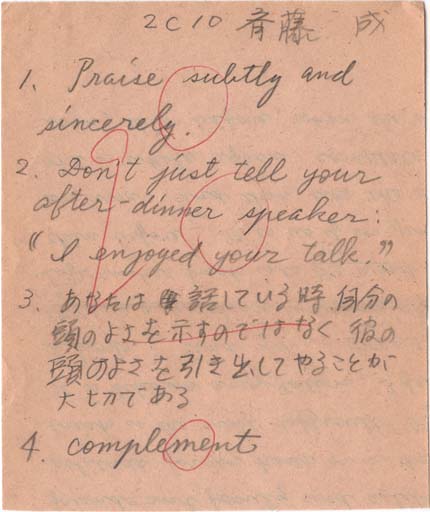 2C10 斉藤 成
1. Praise subtly and
sincerely.
2. Don't just tell your
after-dinner speaker:
"I enjoyed your talk."
3. あなたは 話している時 自分の
頭のよさを示すのではなく 彼の
頭のよさを引き出してやることが
大切である
4. complement
90